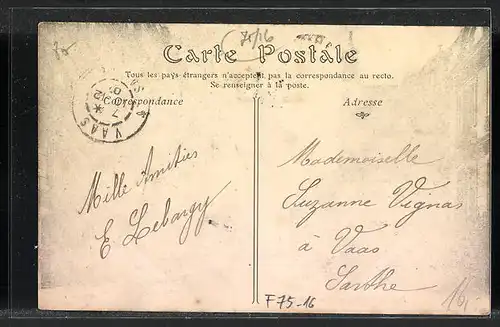 70
75/16
Carte Postale
Tous les pays étrangers n'acceptent pas la correspondance au recto.
Se renseigner à la poste.
Correspondance
Adresse
VAAS
Mille Amitiés
E Lebargy
Mademoiselle
Suzanne Vignas
à Vaas
Sarthe
F75-16
16,-